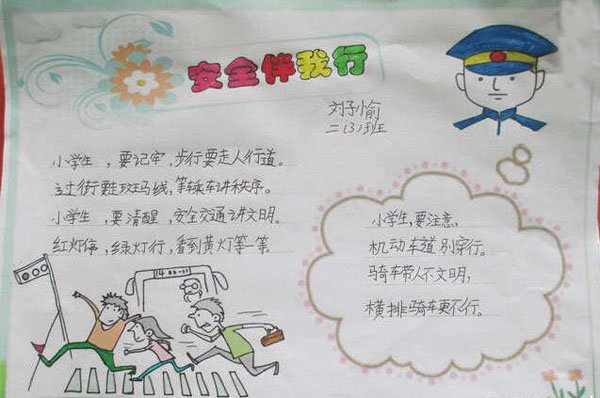 安全伴我行
刘子愉
二(3)班
小学生,要记牢,步行要走人行道。
过街要走斑马线,等乘车讲秩序。
小学生,要清醒,安全交通讲文明。
红灯停,绿灯行,看到黄灯等一等。
小学生,要注意,
机动车道别穿行。
骑车带人不文明,
横排骑车更不行。
114